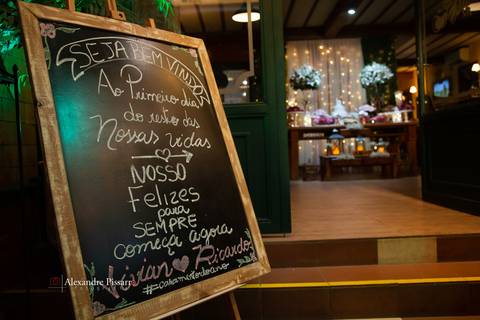 SEJA BEM VINDO
Ao Primeiro dia
do resto das
Nossas vidas
NOSSO
Felizes
para
SEMPRE
começa agora
Vivian Ricardo
Alexandre Pissarra